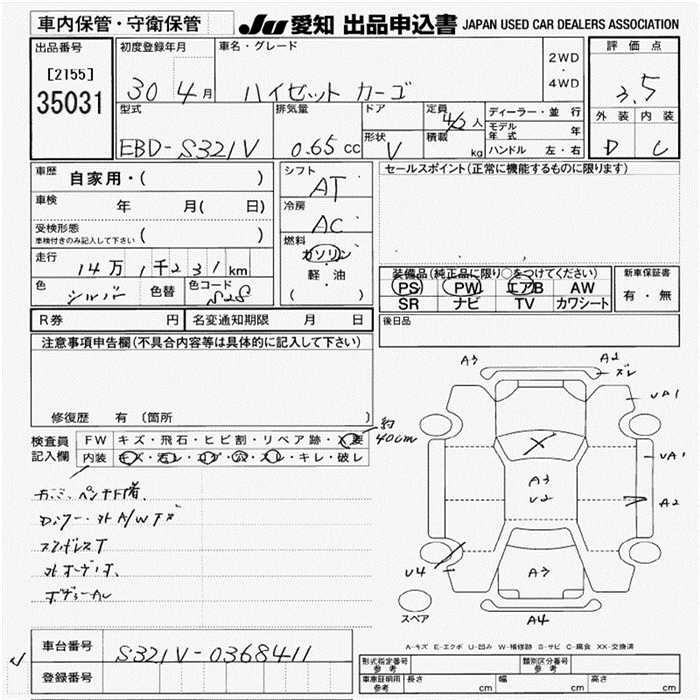 車内保管・守衛保管
JU 愛知 出品申込書 JAPAN USED CAR DEALERS ASSOCIATION
出品番号
[2155]
35031
初度登録年月
30 4月
車名・グレード
ハイゼット カーゴ
2WD
・
4WD
評価点
3.5
外装 内装
D C
型式
EBD-S321V
排気量
0.65 cc
ドア
形状
V
定員
人
積載
kg
ディーラー・並行
モデル年式 年
ハンドル 左・右
車歴 自家用・( )
車検 年 月( 日)
受検形態
車検付きのみ記入して下さい ( )
走行 14万1千231km
色 シルバー 色替 色コード S28
シフト
AT
冷房
AC
燃料
ガソリン
軽・油
( )
セールスポイント(正常に機能するものに限ります)
装備品(純正品に限り○をつけてください)
PS PW エアB AW
SR ナビ TV カワシート
新車保証書
有・無
R券 円 名変通知期限 月 日
後日品
注意事項申告欄(不具合内容等は具体的に記入して下さい)
修復歴 有 (箇所 )
検査員
記入欄
FW キズ・飛石・ヒビ割・リペア跡・X要
内装 キズ・汚レ・コゲ・穴・スレ・キレ・破レ
約
40cm
A3
A2
ズレ
UA1
X
UA1
A3
U2
A2
U4
A3
A4
スペア
A-キズ E-エクボ U-凹み W-補修跡 S-サビ C-腐食 XX-交換済
車台番号 S321V-0368411
登録番号
型式指定番号
参考
類別区分番号
参考
車庫証明用
参考
長さ cm 幅 cm 高さ cm